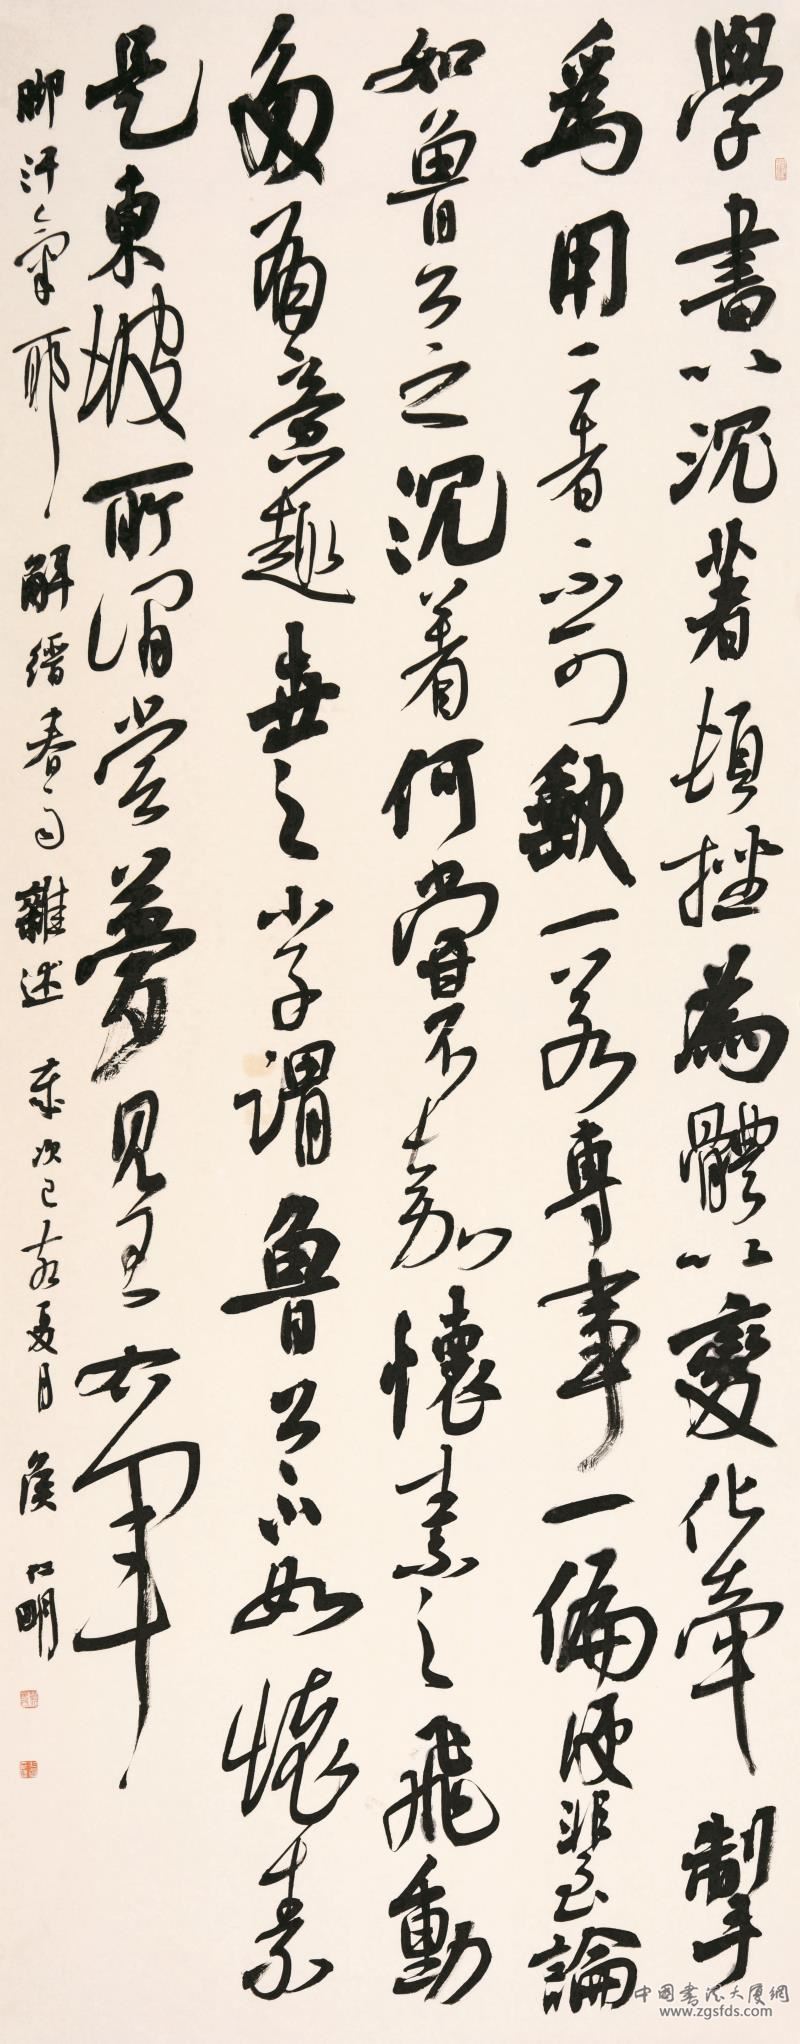 學書以沉著頓挫爲體以變化牽掣
爲用二者不可缺一若專事一偏便非至論
如魯公之沉着何嘗不嘉懷素之飛動
多有意趣世之小子謂魯公不如懷素
是東坡所謂嘗夢見王右軍
脚汗氣耶解縉春雨雜述 歲次己亥夏月 侯
中国书法大厦网
www.zgsfds.com